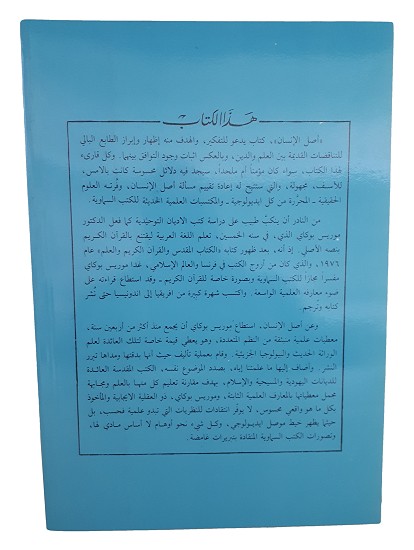 هذا الكتاب
«أصل الإنسان»، كتاب يدعو للتفكير، والهدف منه إظهار وإبراز الطابع البالي
للتناقضات القديمة بين العلم والدين، وبالعكس اثبات وجود التوافق بينهما. وكل قارىء
لهذا الكتاب، سواء كان مؤمناً أم ملحداً، سيجد فيه دلائل محسوسة كانت بالأمس،
للأسف، مجهولة، والتي ستتيح له إعادة تقييم مسألة أصل الإنسان، وقرّبته العلوم
الحقيقية ـ المحرّرة من كل ايديولوجيا ـ والمكتسبات العلمية الحديثة للكتب السماوية.
من النادر أن يبكّ طبيب على دراسة كتب الاديان التوحيدية كما فعل الدكتور
موريس بوكاي الذي، في سنه الخمسين، تعلم اللغة العربية ليقتنع بالقرآن الكريم
بنصه الأصلي. إذ أنه، بعد ظهور كتابه «الكتاب المقدس والقرآن الكريم والعلم» عام
١٩٧٦، والذي كان من أروج الكتب في فرنسا والعالم الإسلامي، غدا موريس بوكاي
مفسراً مجازاً للكتب السماوية وبصورة خاصة للقرآن الكريم ـ وقد استطاع قراءته على
ضوء معارفه العلمية الواسعة. واكتسب شهرة كبيرة من افريقيا إلى اندونيسيا حتى نُشر
كتابه وتُرجم
وعن أصل الإنسان، استطاع موريس بوكاي أن يجمع منذ أكثر من أربعين سنة،
معطيات علمية مستقة من النظم المتعددة، وهو يعطي قيمة خاصة لتلك العائدة لعلم
الوراثة الحديث والبيولوجيا الجزيئية. وقام بعملية تأليف حيث أنها بدقتها ومداها تبرر
النشر. وأضاف إليها ما علمتنا إياه، بصدد الموضوع نفسه، الكتب المقدسة العائدة
للديانات اليهودية والمسيحية والإسلام، بهدف مقارنة تعليم كل منها بالعلم ومجابهة
مجمل معطياتها بالمعارف العلمية الثابتة، وموريس بوكاي، ذو العقلية الايجابية والمأخوذ
بكل ما هو واقعي محسوس، لا يوفّر انتقادات للنظريات التي تبدو علمية فحسب، بل
حيثما يظهر خيط موصل ايديولوجي، وكل شيء نحو أوهام لا أساس مادي لها،
وتصورات الكتب السماوية المنقادة بتبريرات غامضة.